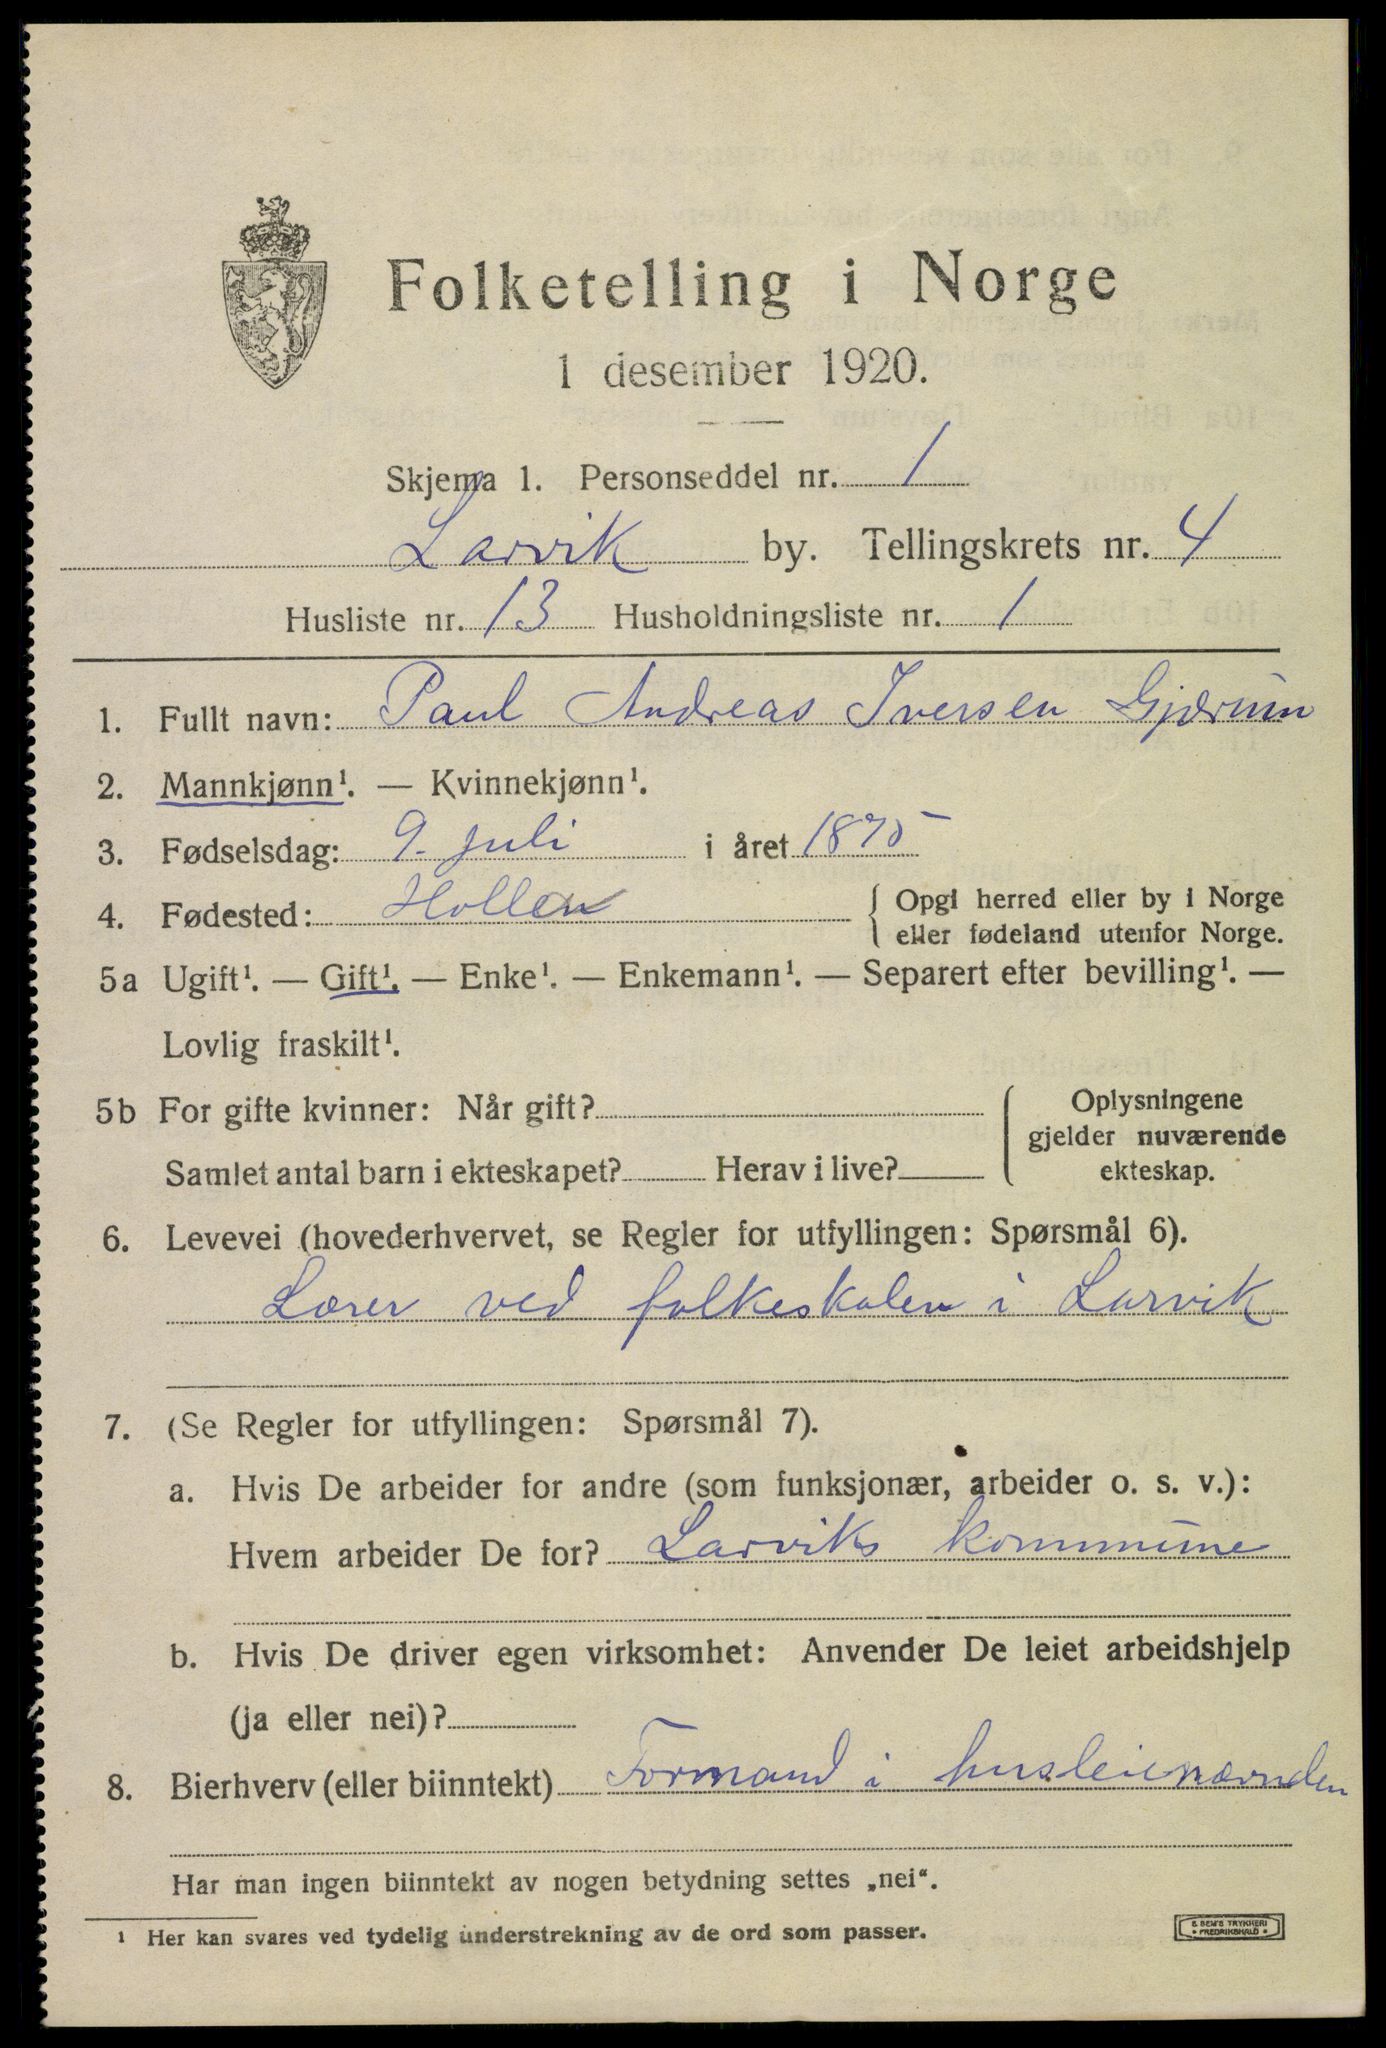 Folketelling i Norge
1 desember 1920.
Skjema 1. Personseddel nr. 1
Larvik by. Tellingskrets nr. 4
Husliste nr. 13 Husholdningsliste nr. 1
1. Fullt navn: Paul Andreas Iversen Gjærum
2. Mannkjønn¹. — Kvinnekjønn¹.
3. Fødselsdag: 9. juli i året 1875
4. Fødested: Hollen { Opgi herred eller by i Norge
eller fødeland utenfor Norge.
5a Ugift¹. — Gift¹. — Enke¹. — Enkemann¹. — Separert efter bevilling¹. —
Lovlig fraskilt¹.
5b For gifte kvinner: Når gift?
Samlet antal barn i ekteskapet? Herav i live?
Oplysningene
gjelder nuværende
ekteskap.
6. Levevei (hovederhvervet, se Regler for utfyllingen: Spørsmål 6).
Lærer ved folkeskolen i Larvik
7. (Se Regler for utfyllingen: Spørsmål 7).
a. Hvis De arbeider for andre (som funksjonær, arbeider o. s. v.):
Hvem arbeider De for? Larviks kommune
b. Hvis De driver egen virksomhet: Anvender De leiet arbeidshjelp
(ja eller nei)?
8. Bierhverv (eller biinntekt) Formand i husleienævnden
Har man ingen biinntekt av nogen betydning settes „nei“.
¹ Her kan svares ved tydelig understrekning av de ord som passer.
E SEM'S TRYKKERI
• FREDRIKSHALD •